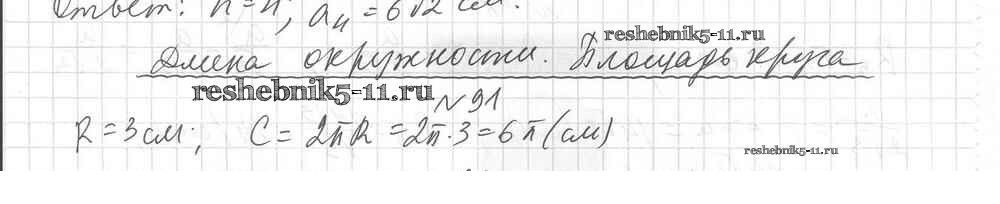 Ответ: n=4; a₄=6√2 см.
reshebnik5-11.ru
Длина окружности. Площадь круга
reshebnik5-11.ru
№91
R=3см; C=2πR=2π·3=6π(см)
reshebnik5-11.ru